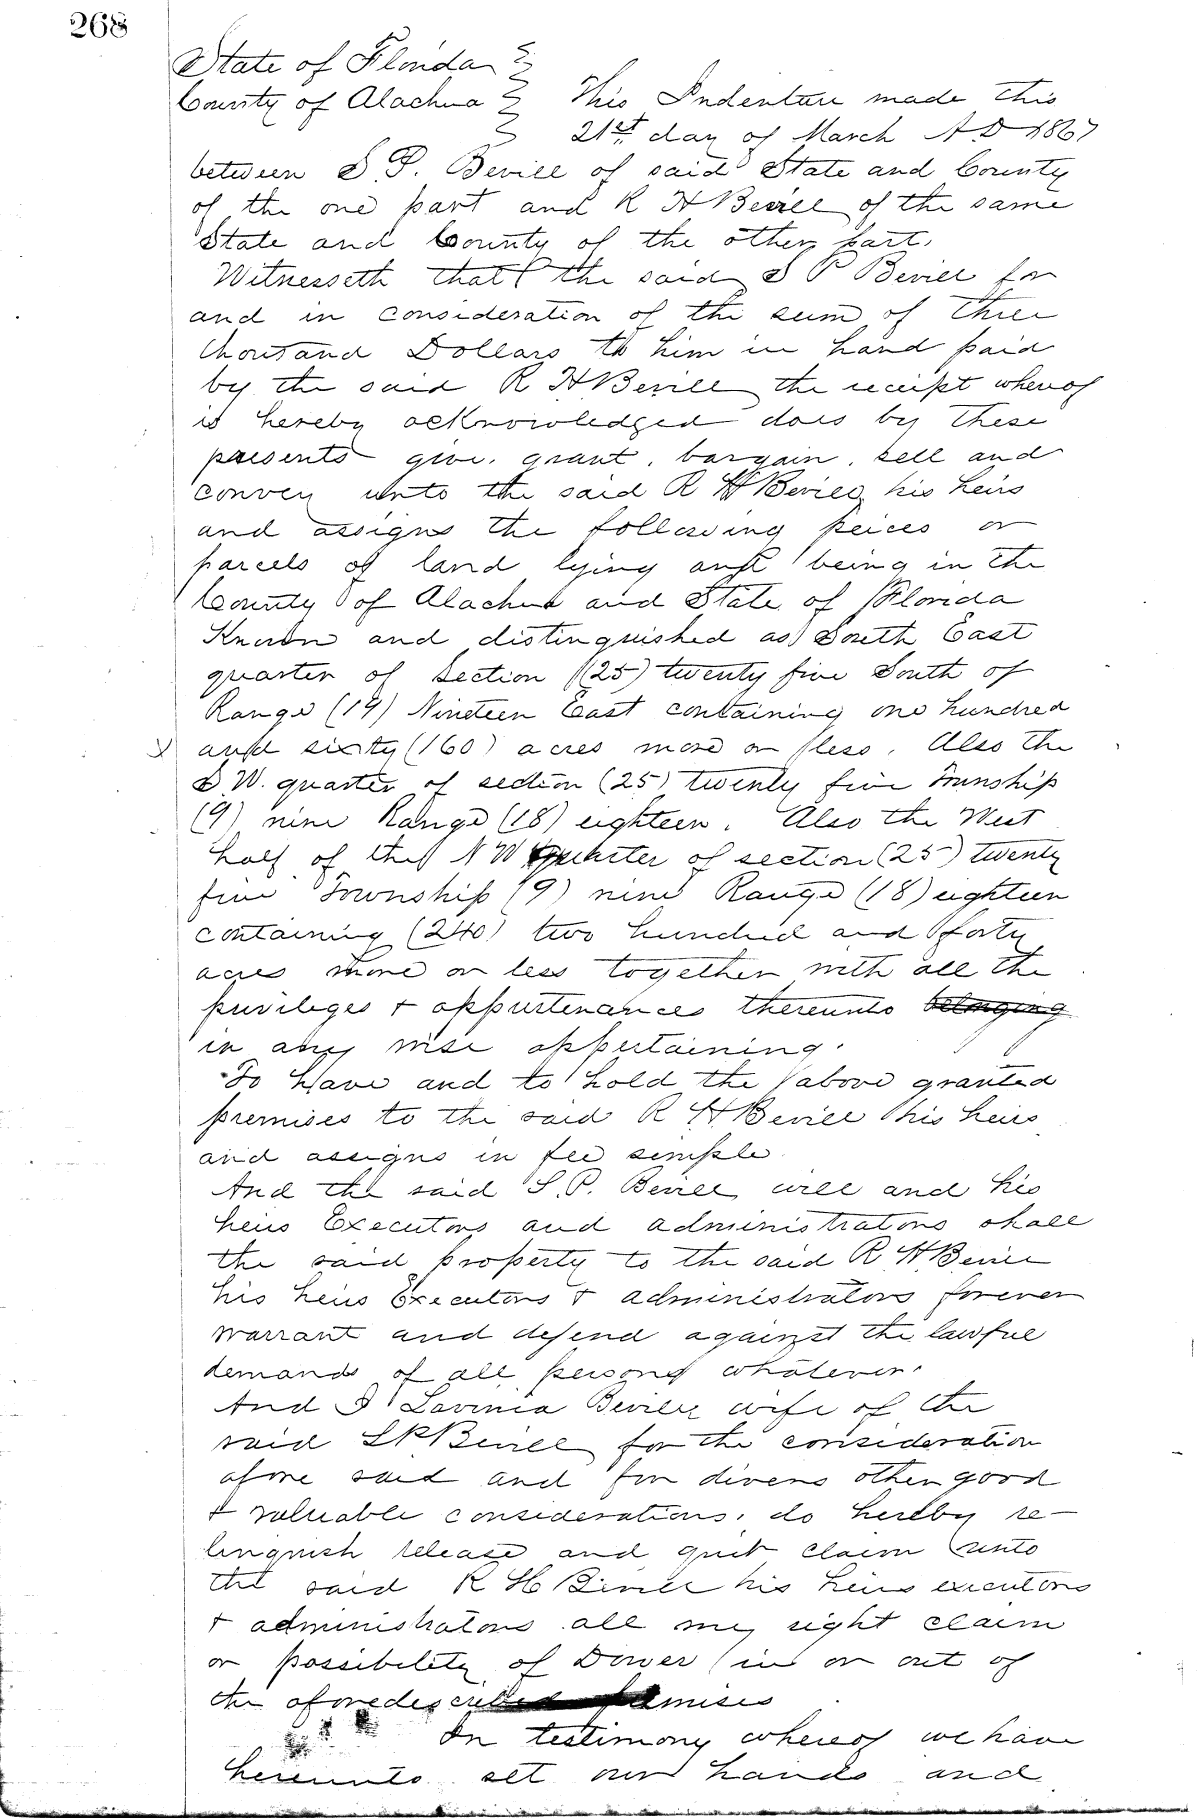 268
State of Florida
County of Alachua This Indenture made this
21st day of March A.D 1867
between S. P. Bevill of said State and County
of the one part and R H Bevill of the same
State and County of the other part.
Witnesseth that the said S P Bevill for
and in consideration of the sum of three
thousand Dollars to him in hand paid
by the said R H Bevill the receipt whereof
is hereby acknowledged does by these
presents give, grant, bargain, sell and
convey unto the said R H Bevill his heirs
and assigns the following peices or
parcels of land lying and being in the
County of Alachua and State of Florida
Known and distinguished as South East
quarter of Section (25) twenty five South of
Range (19) Nineteen East containing one hundred
and sixty (160) acres more or less. Also the
S.W. quarter of section (25) twenty five Township
(9) nine Range (18) eighteen. Also the West
half of the N W quarter of section (25) twenty
five Township (9) nine Range (18) eighteen
containing (240) two hundred and forty
acres more or less together with all the
privileges + appurtenances thereunto belonging
in any wise appertaining.
To have and to hold the above granted
premises to the said R H Bevill his heirs
and assigns in fee simple
And the said S. P. Bevill will and his
heirs Executors and administrators shall
the said property to the said R H Bevill
his heirs Executors + administrators forever
warrant and defend against the lawful
demands of all persons whatever.
And I Lavinia Bevill wife of the
said S P Bevill for the consideration
afore said and for divers other good
+ valuable considerations, do hereby re-
linquish release and quit claim unto
the said R H Bevill his heirs executors
+ administrators all my right claim
or possibility of Dower in or out of
the aforedescribed premises
In testimony whereof we have
hereunto set our hands and